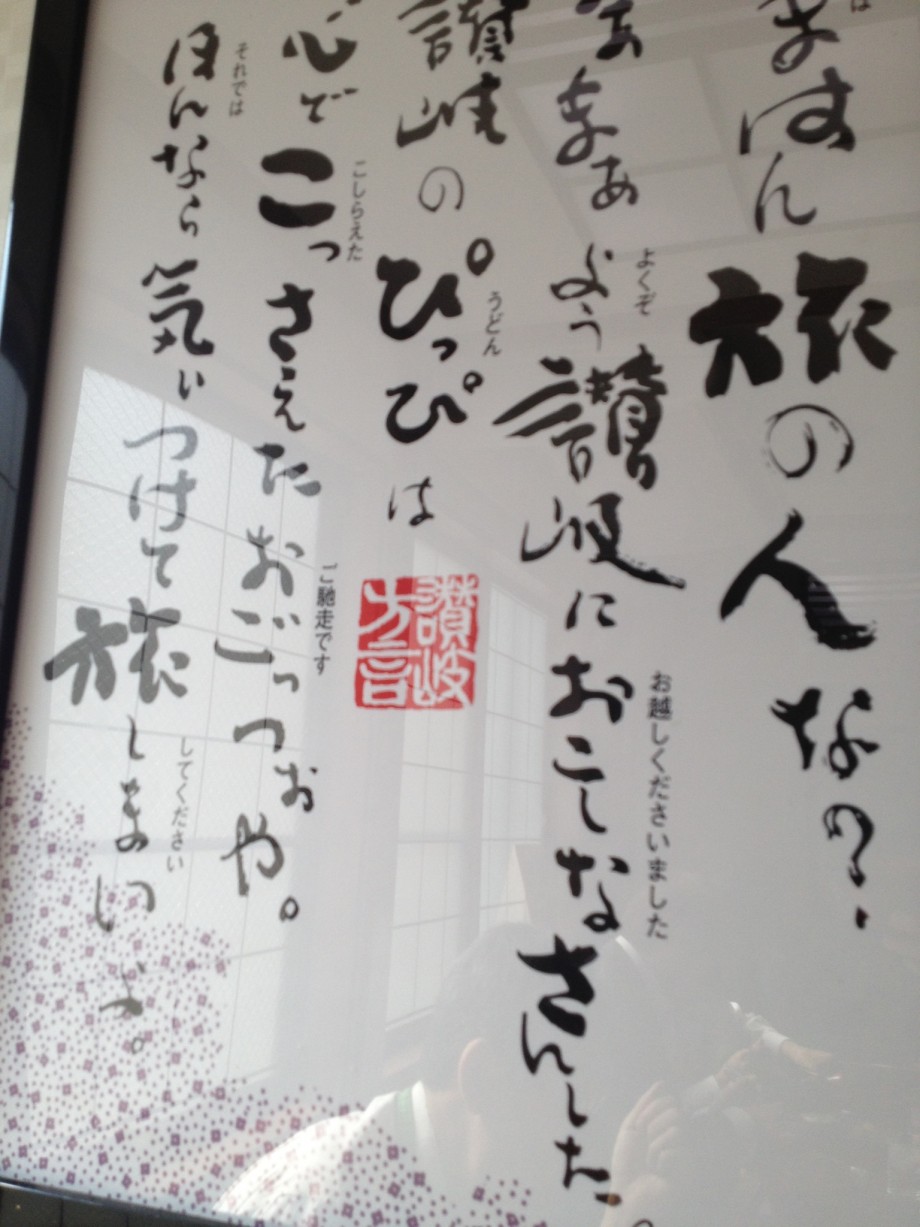 まはん旅の人なの?
まぁよう讃岐におこしなさんした。
よくぞ
お越しくださいました
讃岐のぴっぴは
うどん
讃岐
方言
心でこっさえたおごっつぉや。
こしらえた
ご馳走です
ほんなら気ぃつけて旅しまいよ。
それでは
してください